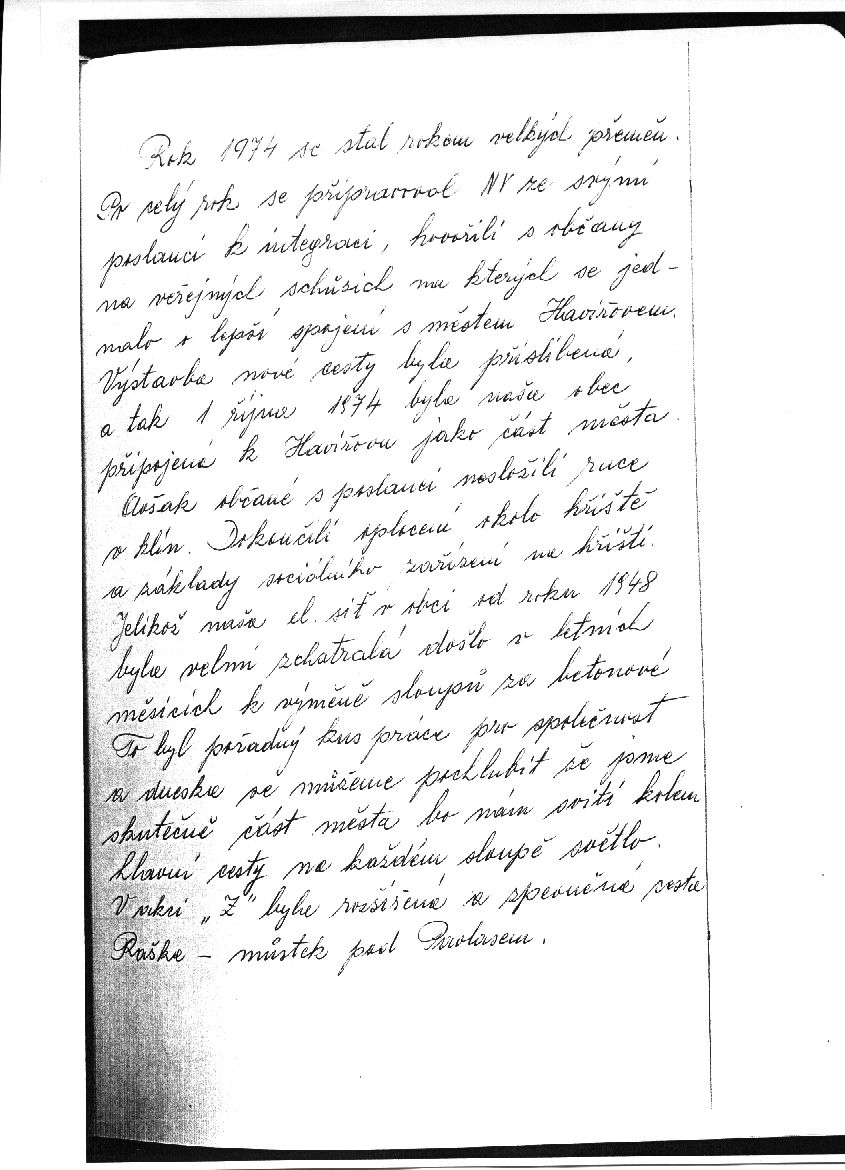 Rok 1974 se stal rokem velkých přeměn.
Po celý rok se připravoval NV ze svými
poslanci k integraci, hovořili s občany
na veřejných schůsich na kterých se jed-
nalo o lepší spojení s městem Havířovem.
Výstavba nové cesty byla přislíbená,
a tak 1 října 1974 byla naša obec
připojená k Havířovu jako část města.
Ovšak občané s poslanci nesložili ruce
v klín. Dokončili oplocení okolo hřiště
a základy sociálního zařízení na hřišti.
Jelikož naša el. síť v obci od roku 1948
byla velmi zchatralá došlo v letních
měsících k výměně sloupů za betonové
To byl pořadný kus práce pro společnost
a dneska se můžeme pochlubit že jsme
skutečně část města bo nám svítí kolem
hlavní cesty na každém sloupě světlo.
V akci „Z" byla rozšířená a zpevněná cesta
Raška – můstek pod Pavlasem.